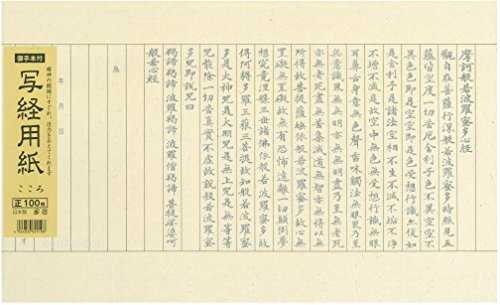 摩訶般若波羅蜜多心経
觀自在菩薩行深般若波羅蜜多時照見五
蘊皆空度一切苦厄舎利子色不異空空不
異色色即是空空即是色受想行識亦復如
是舎利子是諸法空相不生不滅不垢不浄
不増不減是故空中無色無受想行識無眼
耳鼻舌身意無色聲香味觸法無眼界乃至
無意識界無無明亦無無明盡乃至無老死
亦無老死盡無苦集滅道無智亦無得以無
所得故菩提薩埵依般若波羅蜜多故心無
罣礙無罣礙故無有恐怖遠離一切顛倒夢
想究竟涅槃三世諸佛依般若波羅蜜多故
得阿耨多羅三藐三菩提故知般若波羅蜜
多是大神咒是大明咒是無上咒是無等等
咒能除一切苦真實不虚故説般若波羅蜜
多咒即説咒曰
羯諦羯諦波羅羯諦波羅僧羯諦菩提薩婆訶
般若心経
為
年 月 日
御手本付
精神の鍛錬にすぐれ、活力をあたえてくれます
写経用紙
こころ
正100枚
日本製